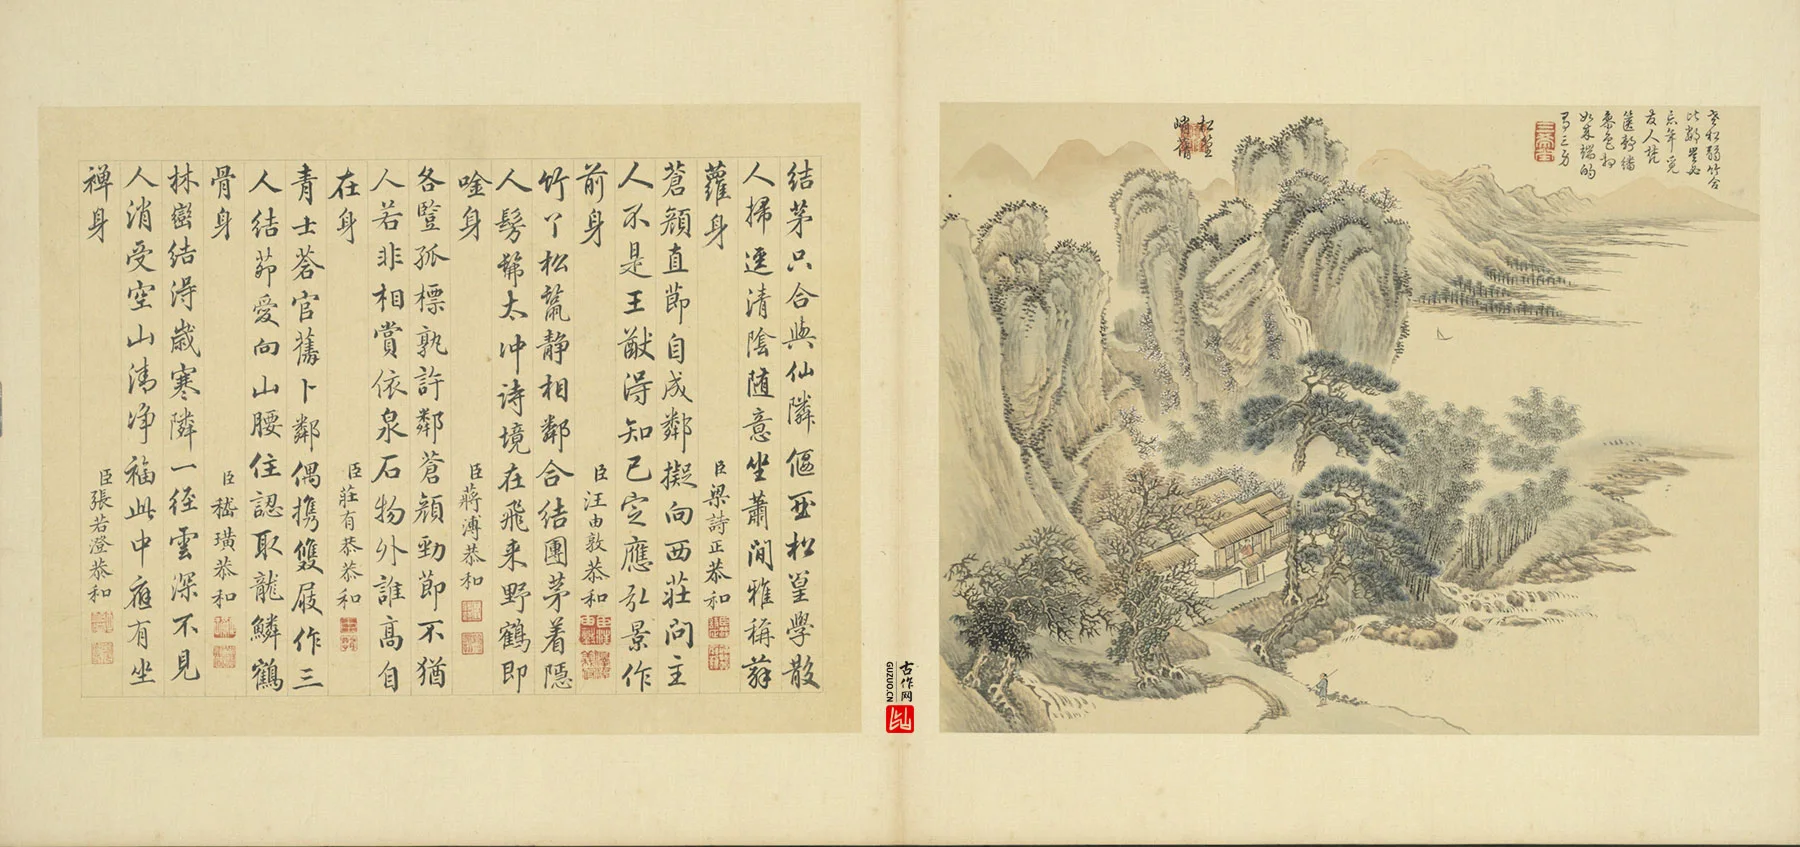 松篁
峭蒨
三希堂
結茅只合與仙隣偃亞松篁學散
人掃逕清陰随意坐蕭閒雅稱薜
蘿身 臣梁詩正恭和
蒼顏直節自成鄰擬向西莊問主
人不是王猷得知己定應弘景作
前身 臣汪由敦恭和
竹丫松靜相鄰合結團茅着隱
人髣髴太冲诗境在飛来野鶴即
唫身 臣蔣溥恭和
各豎孤標孰許鄰蒼顏勁節不猶
人若非相賞依泉石物外誰高自
在身 臣莊有恭恭和
青士蒼官舊卜鄰偶携雙屐作三
人結茆愛向山腰住認取龍鱗鶴
骨身 臣嵇璜恭和
林巒結得歲寒隣一徑雲深不見
人消受空山清净福此中應有坐
禅身 臣張若澄恭和
古作网
GUZUO.CN